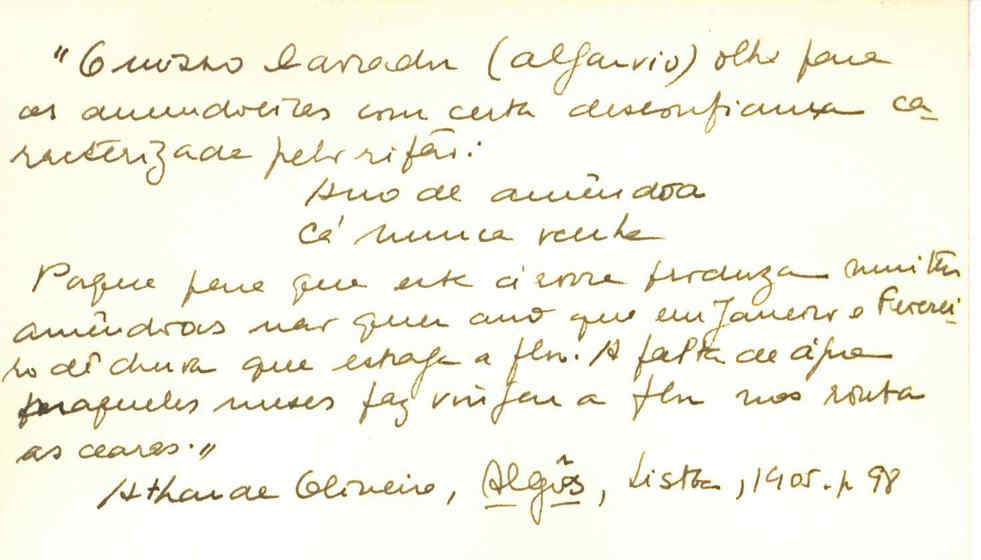 "O nosso lavrador (algarvio) olha para
as amendoeiras com certa desconfiança ca-
racterizada pelo rifão:
Ano de amêndoa
Cá nunca venha
Porque para que esta árvore produza muitas
amêndoas não quer ano que em Janeiro e Feverei-
ro dê chuva que estraga a flor. A falta de água
naqueles meses faz vingar a flor mas
as cearas."
Athaide Oliveira, Algôs, Lisboa, 1905. p 98